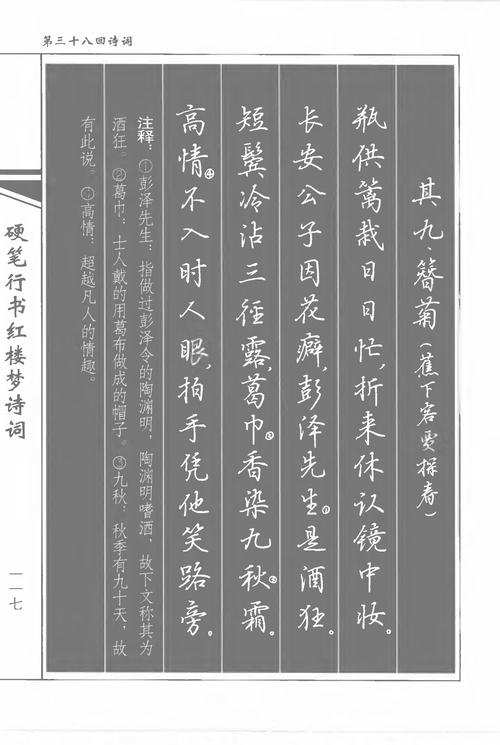 第三十八回诗词
其九·簪菊(蕉下客贾探春)
瓶供篱栽日日忙,折来休认镜中妆。
长安公子因花癖,彭泽先生①是酒狂。
短鬓冷沾三径露,葛巾②香染九秋③霜。
高情④不入时人眼,拍手凭他笑路旁。
注释:①彭泽先生:指做过彭泽令的陶渊明,陶渊明嗜酒,故下文称其为
酒狂。②葛巾:士人戴的用葛布做成的帽子。③九秋:秋季有九十天,故
有此说。④高情:超越凡人的情趣。
硬笔行书红楼梦诗词
一一七